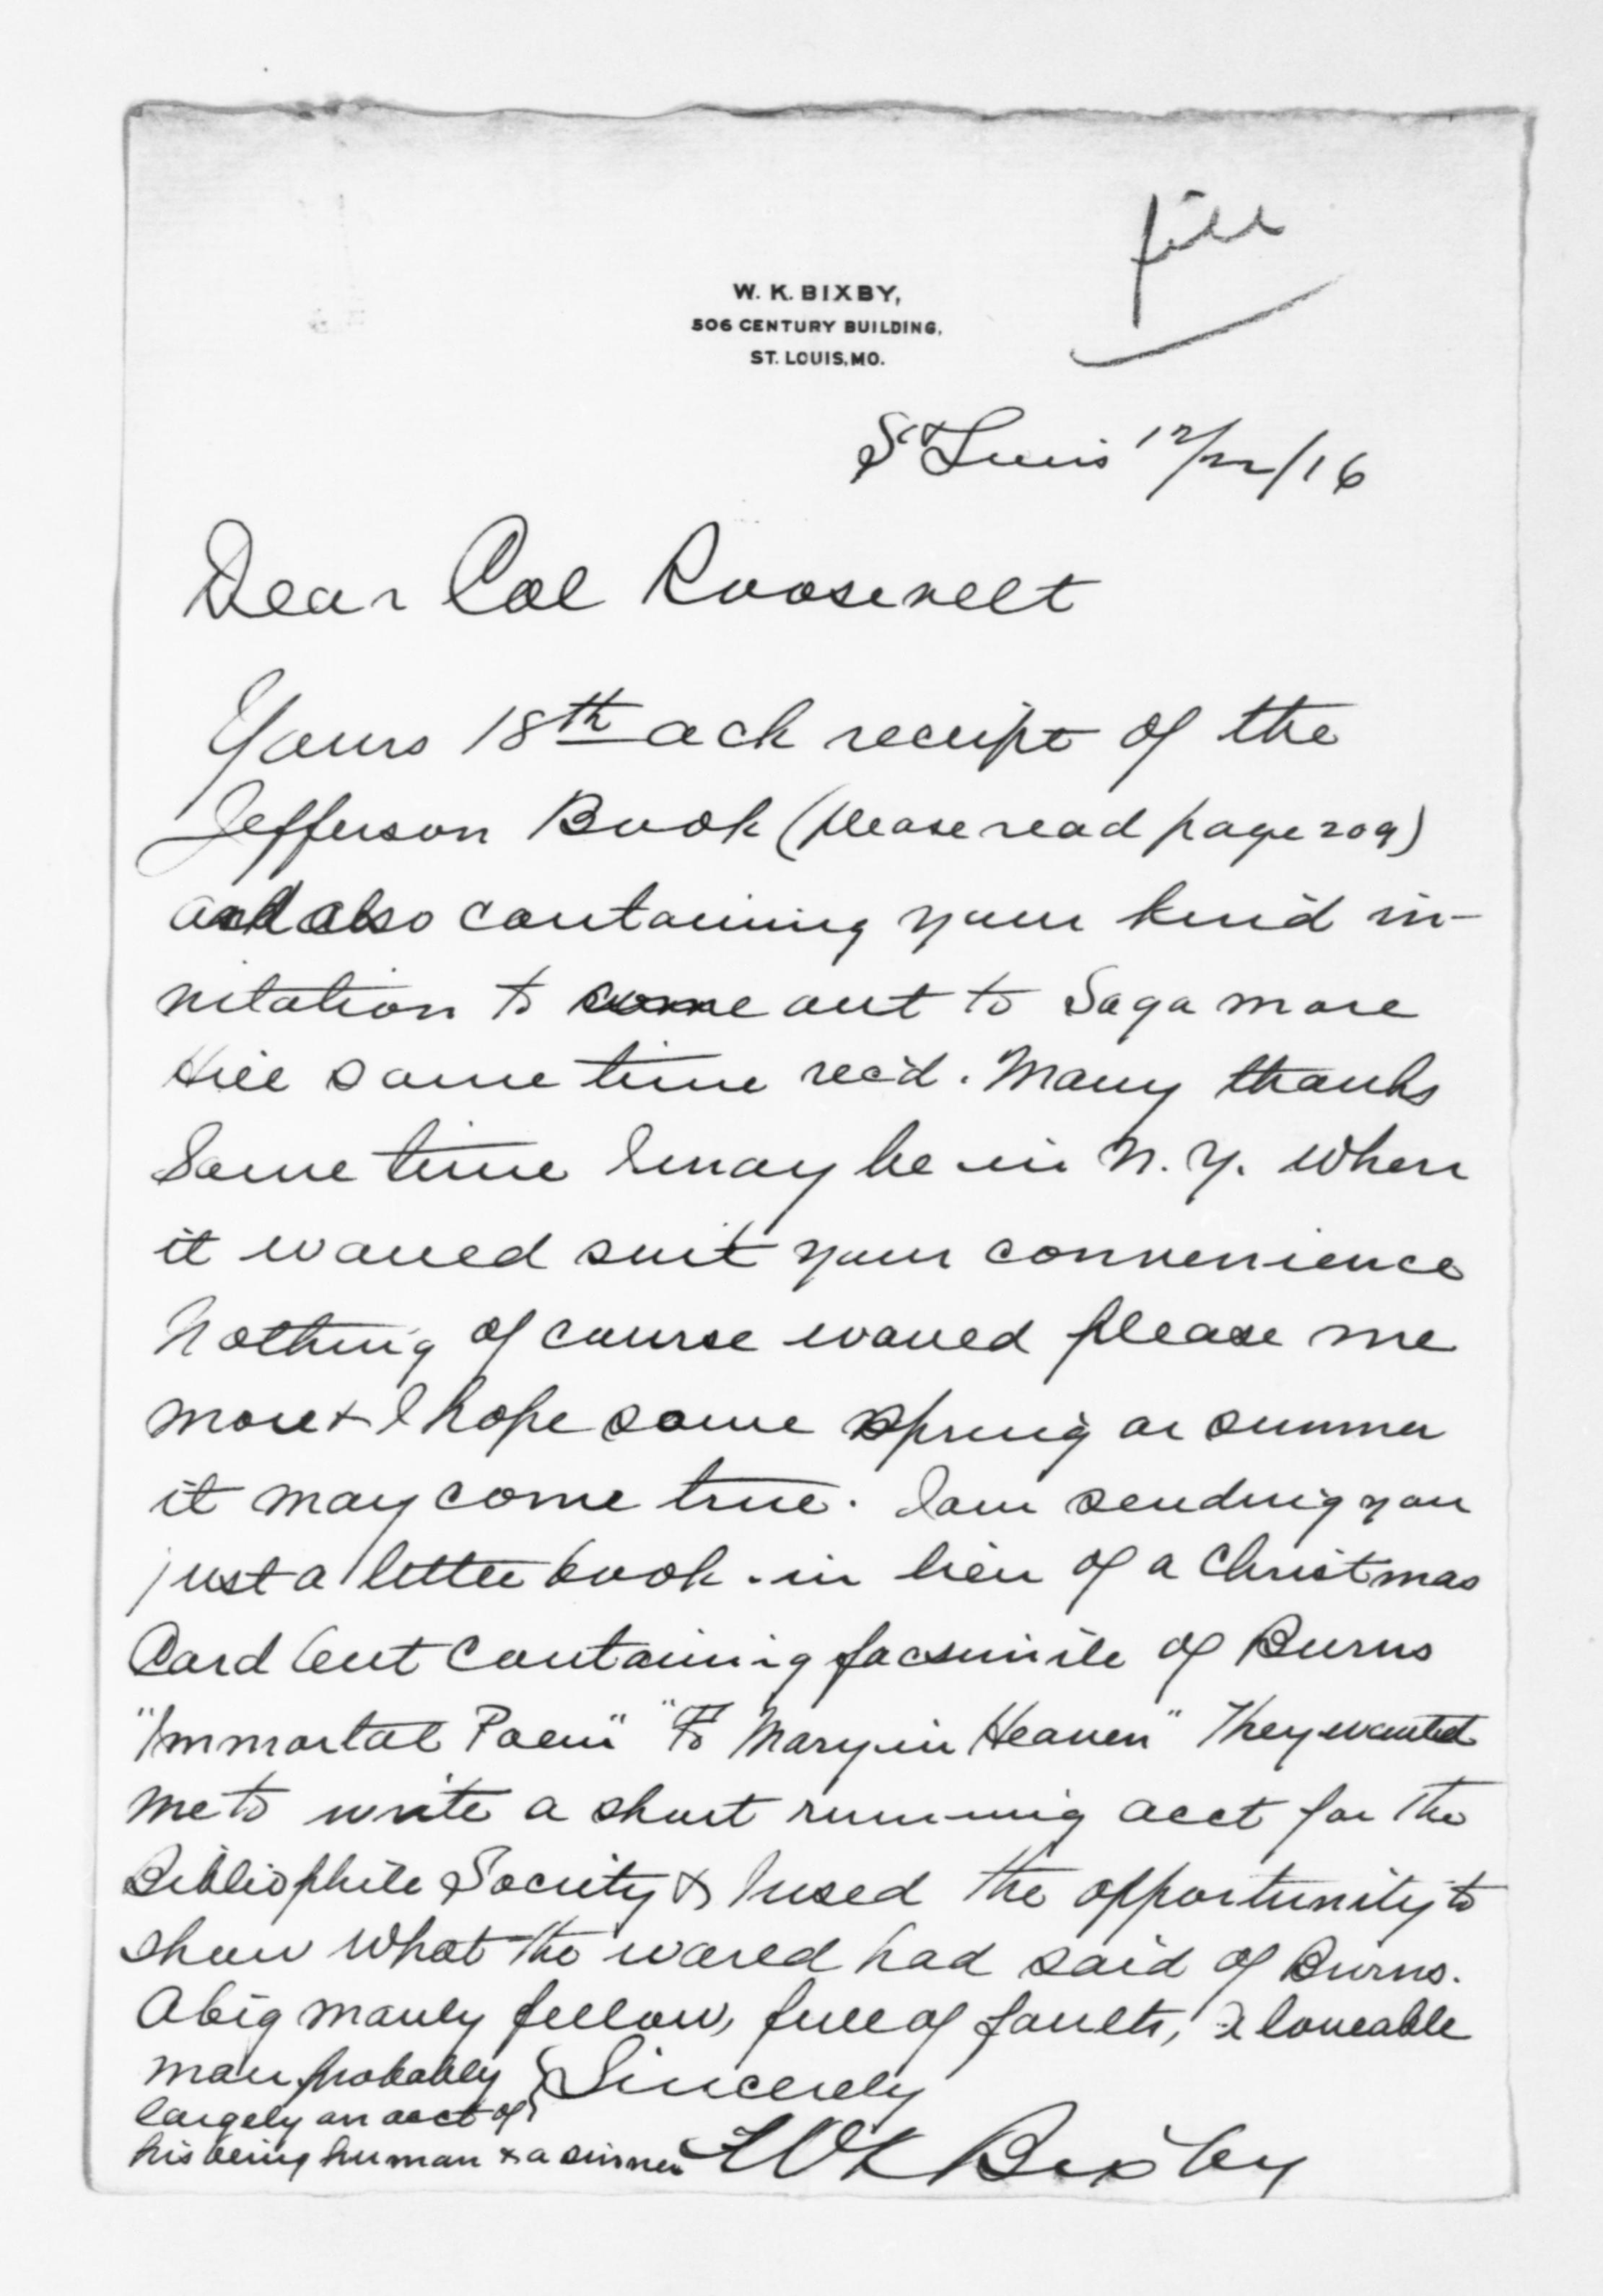 file
W. K. BIXBY,
506 CENTURY BUILDING,
ST. LOUIS, MO.
St Louis 12/22/16
Dear Col Roosevelt
Yours 18th ack receipt of the
Jefferson Book (please read page 209)
and also containing your kind in-
vitation to come out to Sagamore
Hill some time rec'd. Many thanks
Some time I may be in N.Y. when
it would suit your convenience
Nothing of course would please me
more & I hope some spring or summer
it may come true. I am sending you
just a little book - in lieu of a Christmas
Card but containing facsimile of Burns
"Immortal Poem" "To Mary in Heaven" They wanted
me to write a short running acct for the
Bibliophile Society & I used the opportunity to
show what the world had said of Burns.
A big manly fellow, full of faults, a loveable
man probably
largely on acct of
his being human & a sinner
Sincerely
WK Bixby